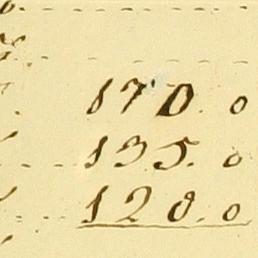 170. 0
135. 0
120. 0